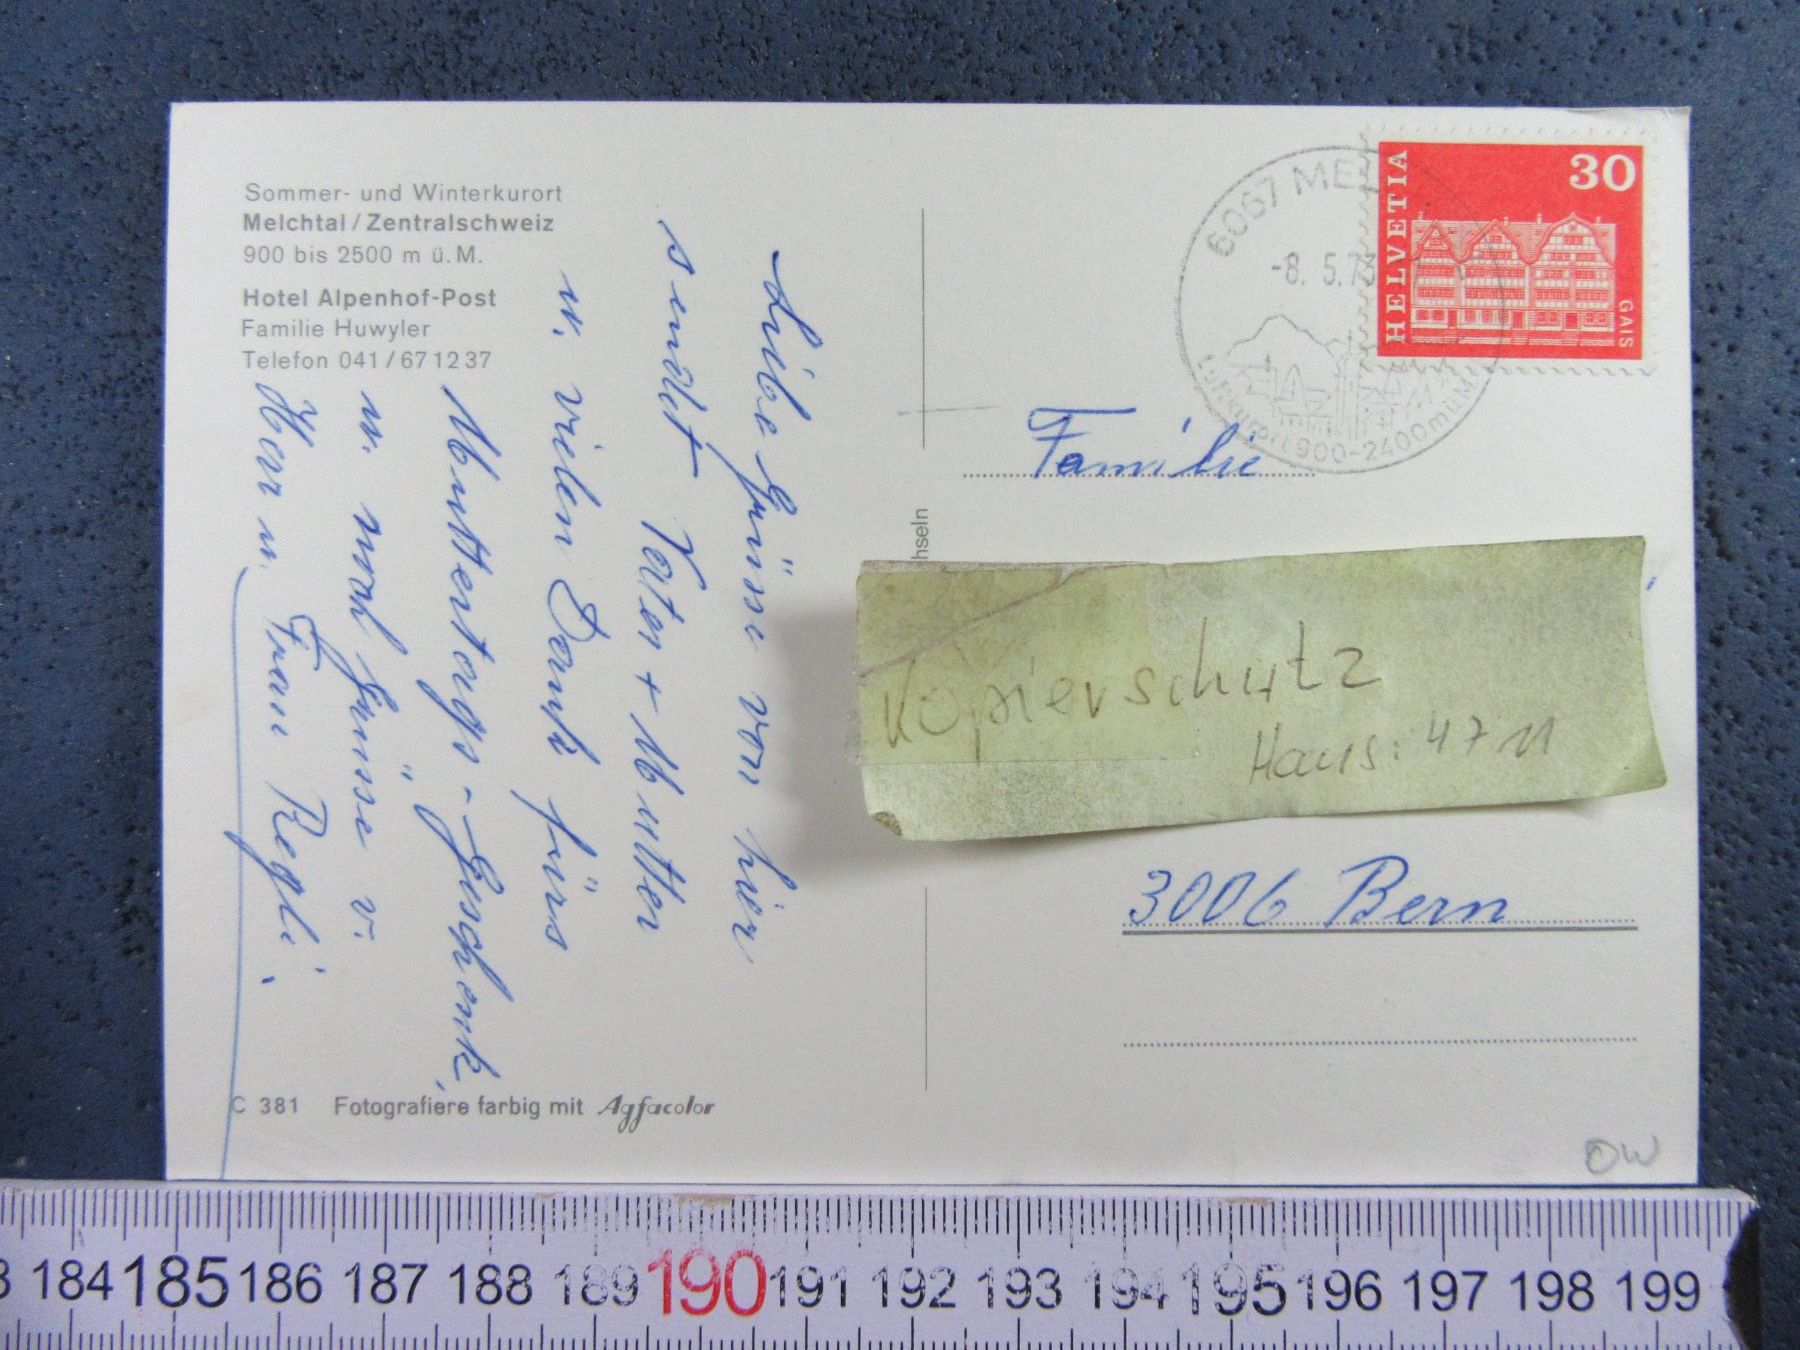 Sommer- und Winterkurort
Melchtal / Zentralschweiz
900 bis 2500 m ü. M.
Hotel Alpenhof-Post
Familie Huwyler
Telefon 041 / 67 12 37
Liebe Grüsse von hier
sendet Vater + Mutter
u. vielen Dank fürs
Muttertags-Geschenk,
u. noch Grüsse v.
Herr u. Frau Regli.
C 381 Fotografiere farbig mit Agfacolor
hseln
6067 ME
-8. 5.73
Luftkurort 900-2400 müM
HELVETIA
30
GAIS
Familie
Kopierschutz
Haus: 4711
3006 Bern
OW
184 185 186 187 188 189 190 191 192 193 194 195 196 197 198 199